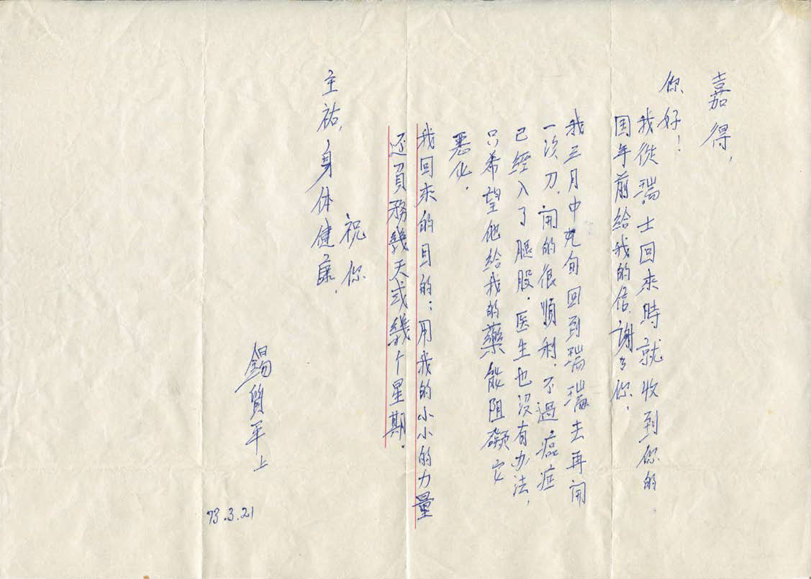 嘉得,
你好!
我從瑞士回來時就收到你的
国年前給我的信.謝々你.
我三月中旬回到瑞瑞去再開
一次刀.開的很順利.不過癌症
已經入了腿股.医生也没有办法,
只希望他給我的藥能阻礙它
惡化.
我回來的目的:用我的小小的力量
还員務幾天或幾个星期.
祝你
主祐,身体健康.
錫質平上
73.3.21